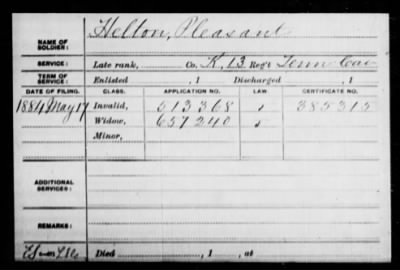 NAME OF SOLDIER: Helton, Pleasant
SERVICE: Late rank, Co. K, 13 Reg't Tenn Cav
TERM OF SERVICE: Enlisted , 1 Discharged , 1
DATE OF FILING. CLASS. APPLICATION NO. LAW. CERTIFICATE NO.
1884 May 17 Invalid, 513368 385315
Widow, 657240
Minor,
ADDITIONAL SERVICES:
REMARKS:
Died , 1 , at